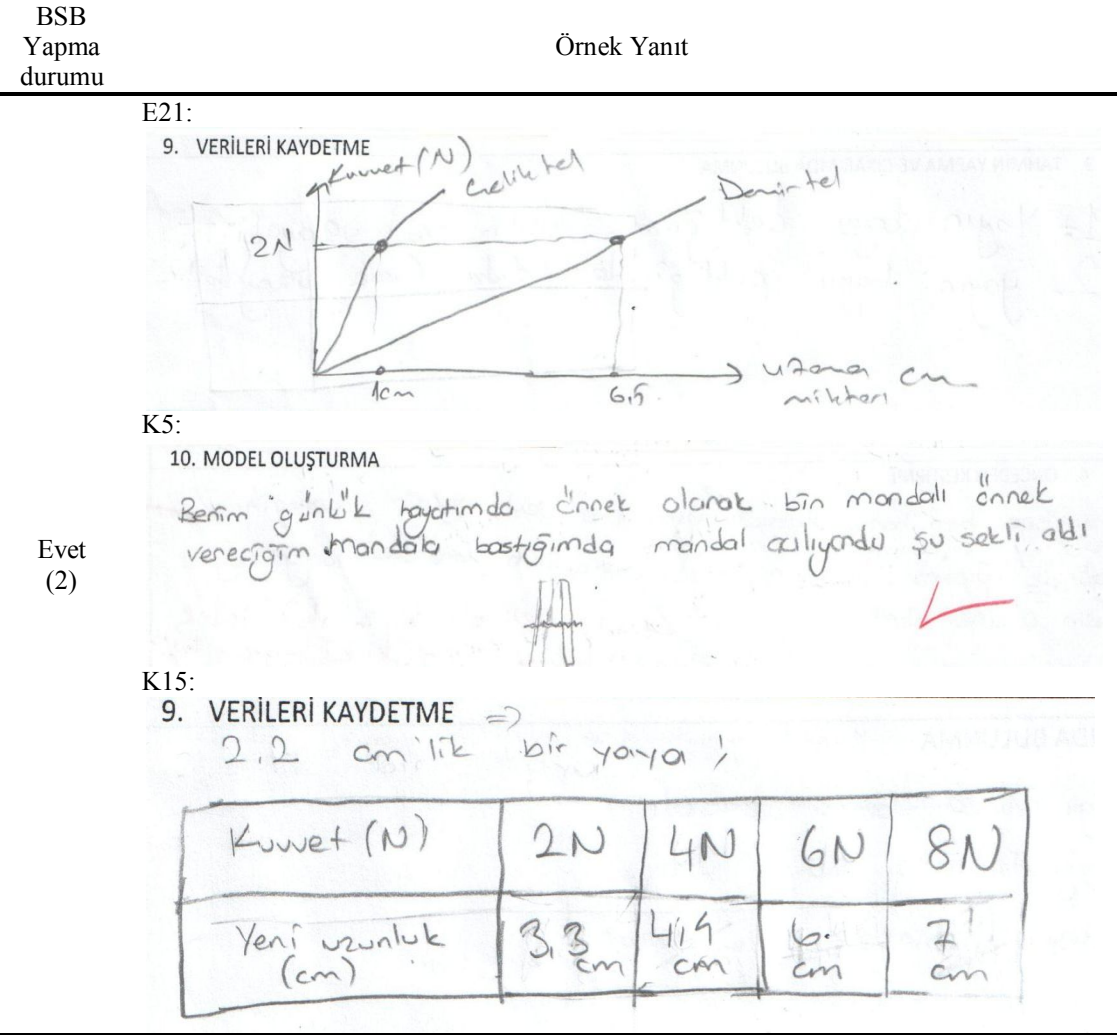 BSB
Yapma
durumu
Örnek Yanıt
Evet
(2)
E21:
9. VERİLERİ KAYDETME
Kuvvet (N)
Çelik tel
Demir tel
2N
1cm
6,5
uzama cm
miktarı
K5:
10. MODEL OLUŞTURMA
Benim günlük hayatımda örnek olarak bir mandalı örnek
vereciğim mandala bastığımda mandal açılıyordu şu şekli aldı
K15:
9. VERİLERİ KAYDETME =>
2,2 cm lik bir yaya!
Kuvvet (N) 2N 4N 6N 8N
Yeni uzunluk 3,3 4,4 6 7
(cm) cm cm cm cm